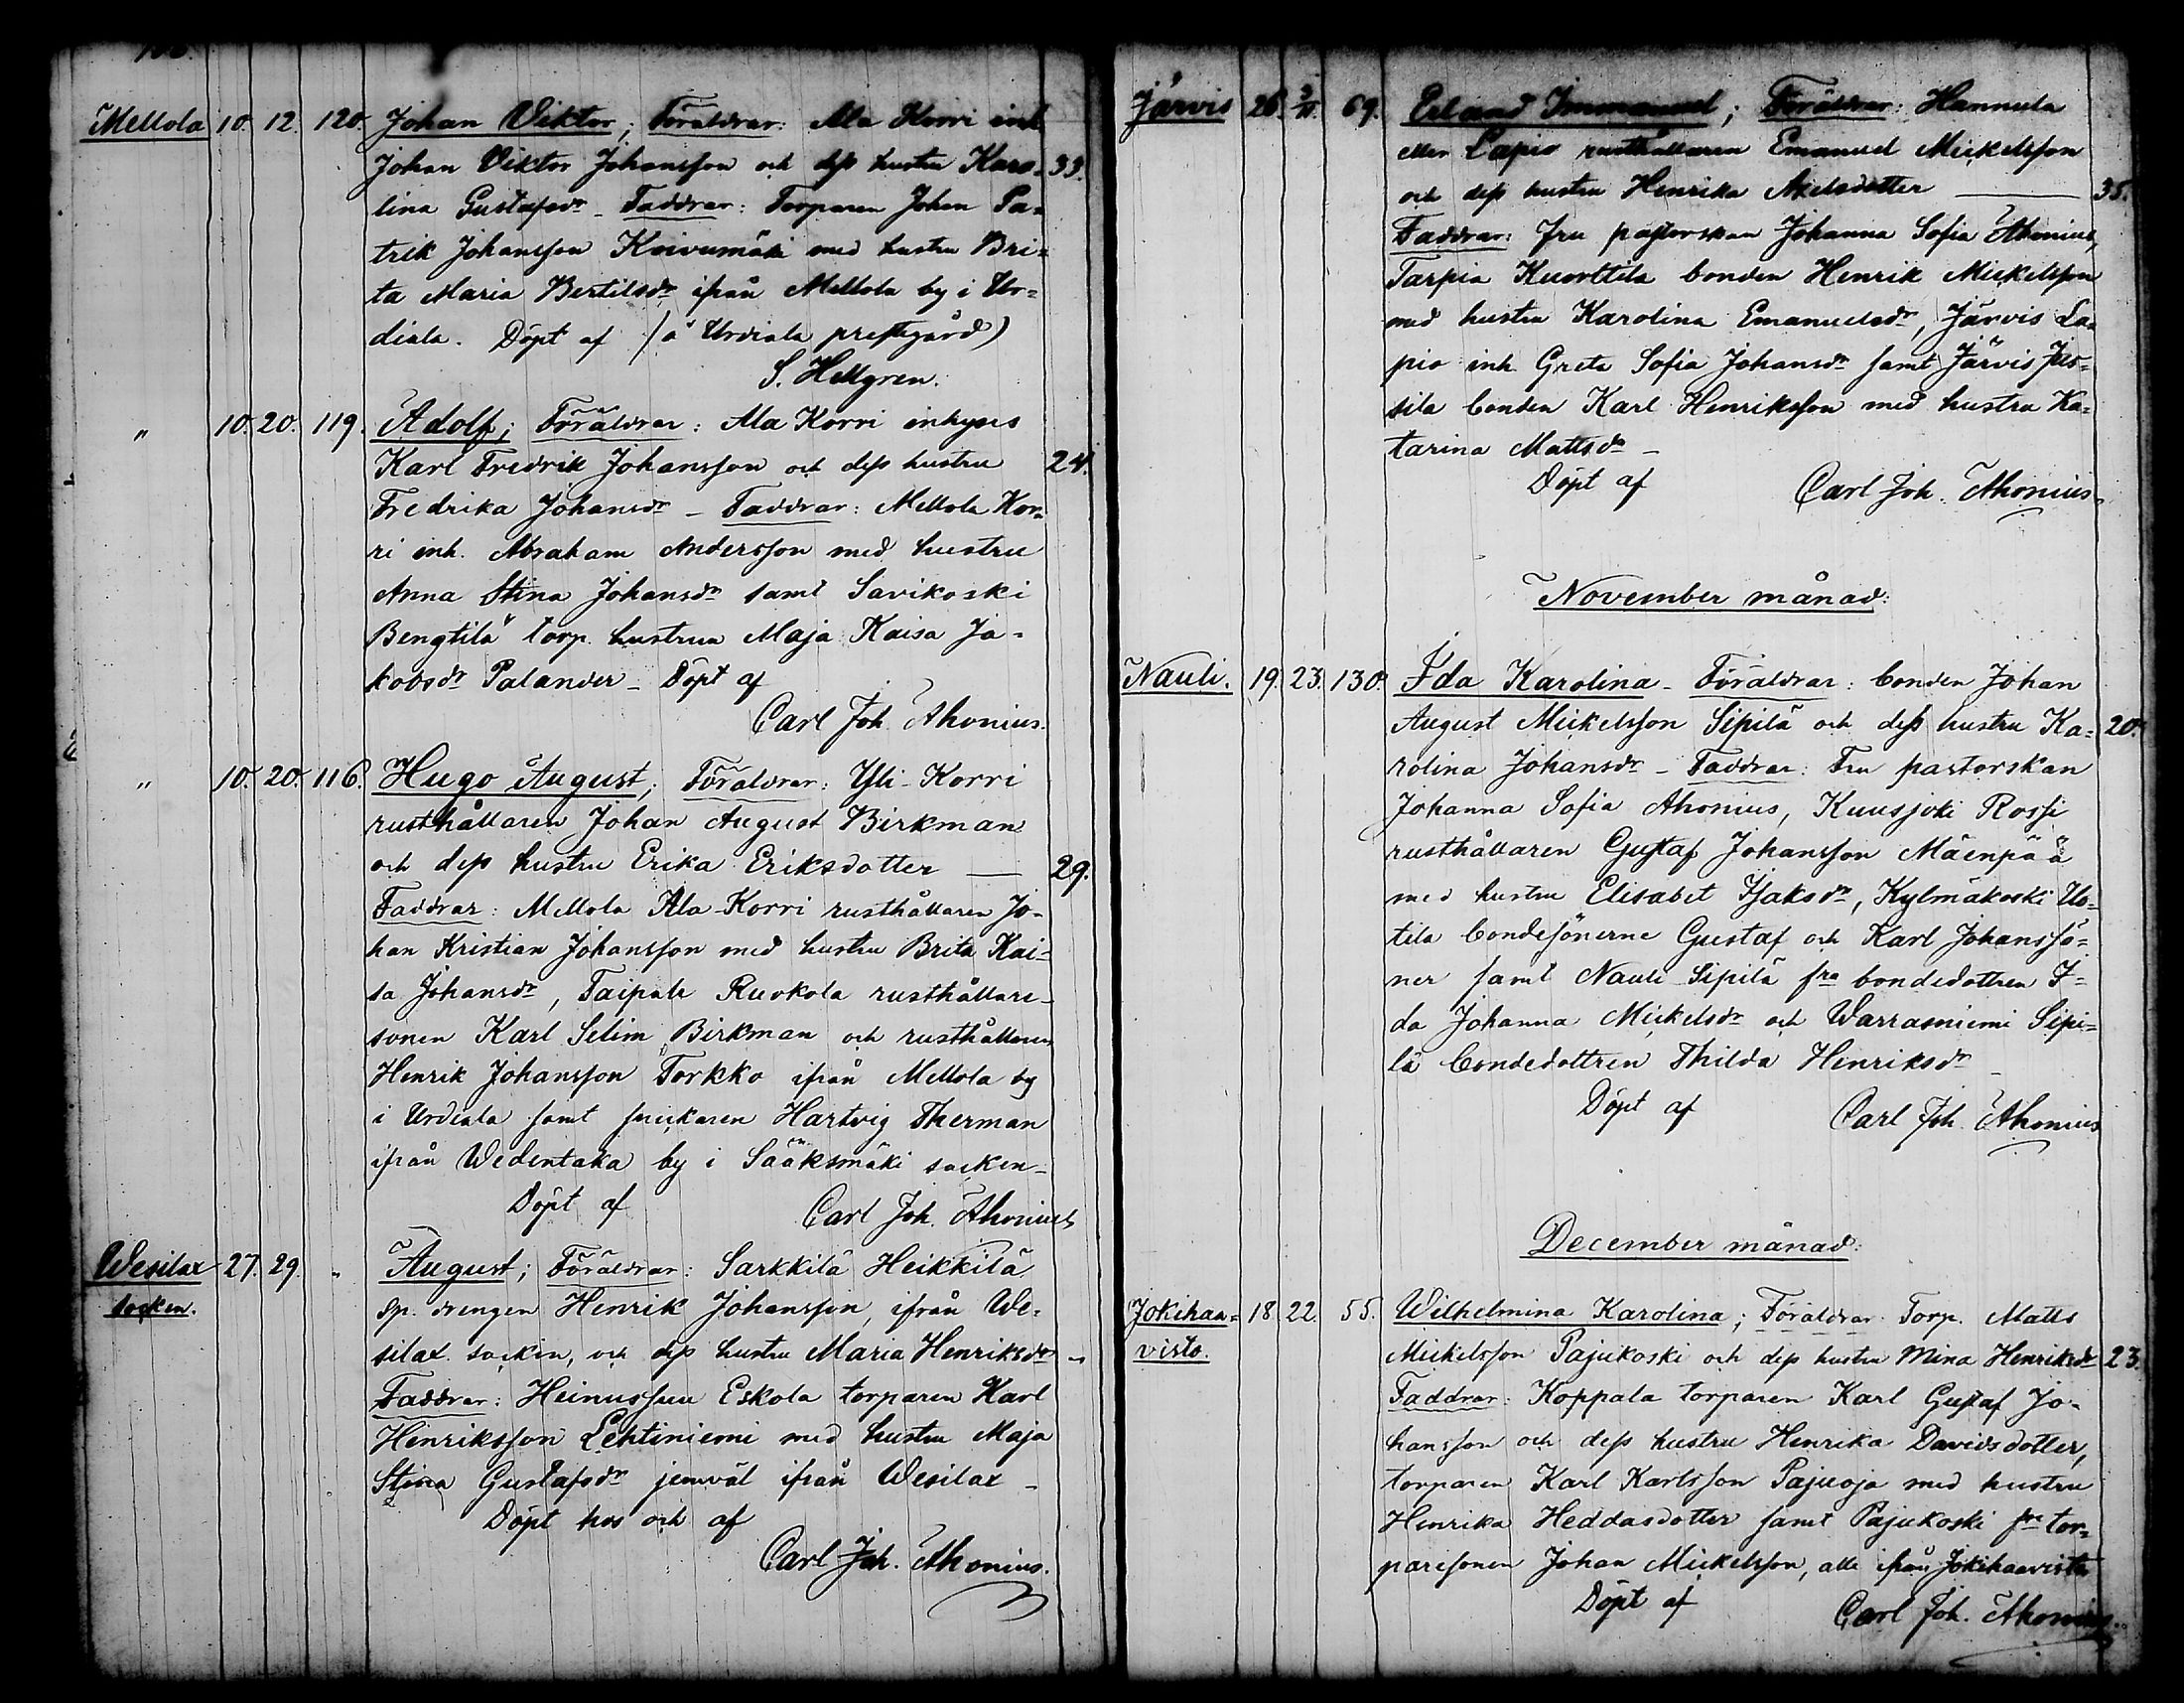 Mellola 10. 12. 120. Johan Viktor; Föräldrar: Ala Korri inh.
Johan Viktor Johansson och dess hustru Karo= 33.
lina Gustafsdr – Faddrar: Torparen Johan Pa=
trik Johansson Koivumäki med hustru Bri=
ta Maria Bertilsdr ifrån Mellola by i Ur=
diala. Döpt af (å Urdiala prestgård)
S. Hellgren.
" 10. 20. 119. Adolf; Föräldrar: Ala Korri inhyses
Karl Fredrik Johansson och dess hustru 24.
Fredrika Johansdr – Faddrar: Mellola Kor=
ri inh. Abraham Andersson med hustru
Anna Stina Johansdr samt Savikoski
Bengtilä torp. hustrun Maja Kaisa Ja=
kobsdr Palander – Döpt af
Carl Joh. Ahonius.
" 10. 20. 116. Hugo August; Föräldrar: Yli-Korri
rusthållaren Johan August Birkman
och dess hustru Erika Eriksdotter — 29.
Faddrar: Mellola Ala-Korri rusthållaren Jo=
han Kristian Johansson med hustru Brita Kai=
sa Johansdr, Taipale Ruokola rusthållare-
sonen Karl Selim Birkman och rusthållaren
Henrik Johansson Torkko ifrån Mellola by
i Urdiala samt snickaren Hartvig Therman
ifrån Wedentaka by i Sääksmäki socken –
Döpt af Carl Joh. Ahonius
Wesilax 27. 29. " August; Föräldrar: Sarkkilä Heikkilä
socken. sp. drengen Henrik Johansson, ifrån We=
silax socken, och dess hustru Maria Henriksdr "
Faddrar: Heinusuu Eskola torparen Karl
Henriksson Lehtiniemi med hustru Maja
Stina Gustafsdr jemväl ifrån Wesilax –
Döpt hos och af
Carl Joh. Ahonius.
Järvis 26. 2/11. 69. Erland Immanuel; Föräldrar: Hannula
eller Lapio rusthållaren Emanuel Mickelsson
och dess hustru Henrika Akelsdotter — 35.
Faddrar: Fru pastorskan Johanna Sofia Ahonius,
Tarpia Kuorttila bonden Henrik Mickelsson
med hustru Karolina Emanuelsdr, Järvis La=
pio inh. Greta Sofia Johansdr samt Järvis Jus=
sila bonden Karl Henriksson med hustru Ka=
tarina Mattsdr –
Döpt af Carl Joh. Ahonius.
November månad:
Nauli. 19. 23. 130. Ida Karolina – Föräldrar: bonden Johan
August Mickelsson Sipilä och dess hustru Ka= 20.
rolina Johansdr – Faddrar: Fru pastorskan
Johanna Sofia Ahonius, Kuusjoki Rossi
rusthållaren Gustaf Johansson Mäenpää
med hustru Elisabet Isaksdr, Kylmäkoski Uo=
tila bondesönerne Gustaf och Karl Johanssö=
ner samt Nauli Sipilä fra bondedottren I=
da Johanna Mickelsdr och Warrasniemi Sipi=
lä bondedottren Thilda Henriksdr –
Döpt af Carl Joh. Ahonius
December månad:
Jokihaa= 18. 22. 55. Wilhelmina Karolina; Föräldrar: Torp. Matts
visto. Mickelsson Pajukoski och dess hustru Mina Henriksdr 23.
Faddrar: Koppala torparen Karl Gustaf Jo=
hansson och dess hustru Henrika Davidsdotter,
torparen Karl Karlsson Pajuoja med hustru
Henrika Heddasdotter samt Pajukoski fra tor=
paresonen Johan Mickelsson, alla ifrån Jokihaavisto
Döpt af Carl Joh. Ahonius.